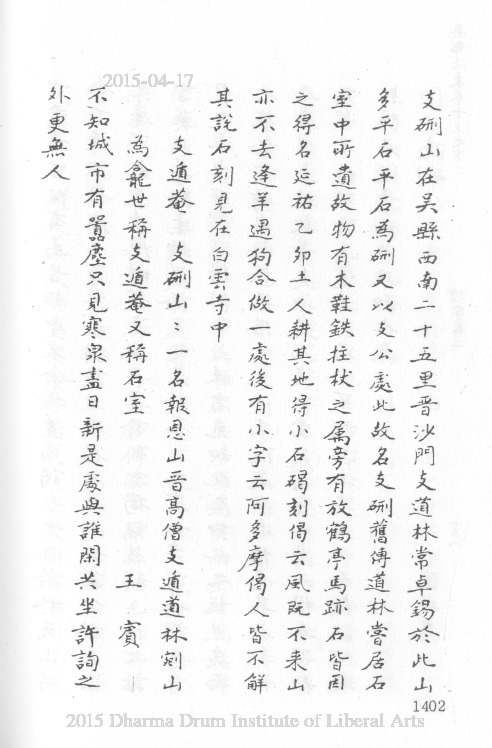 2015-04-17
支硎山在吳縣西南二十五里晉沙門支道林常卓錫於此山
多平石平石為硎又以支公處此故名支硎舊傳道林嘗居石
室中所遺故物有木鞋鉄拄杖之属旁有放鶴亭馬跡石皆因
之得名延祐乙夘土人耕其地得小石碣刻偈云風既不来山
亦不去逢羊遇狗合做一處後有小字云阿多摩偈人皆不解
其說石刻見在白雲寺中
支遁菴 支硎山〻一名報恩山晉髙僧支遁道林剜山
為龕世稱支遁菴又稱石室 王賓
不知城市有囂塵只見寒泉盡日新是處與誰閑共坐許詢之
外更無人
1402
2015 Dharma Drum Institute of Liberal Arts